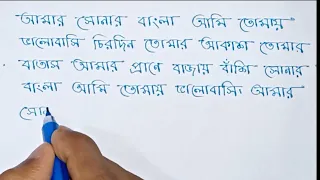 আমার সোনার বাংলা আমি তোমায়
ভালোবাসি চিরদিন তোমার আকাশ তোমার
বাতাস আমার প্রাণে বাজায় বাঁশি সোনার
বাংলা আমি তোমায় ভালোবাসি আমার
সোন